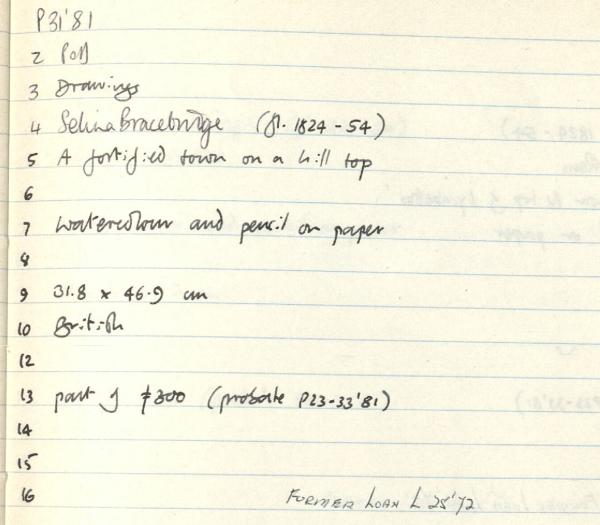 P31'81
2 PoD
3 Drawings
4 Selina Bracebridge (fl. 1824-54)
5 A fortified town on a hill top
6
7 Watercolour and pencil on paper
8
9 31.8 x 46.9 cm
10 British
12
13 part of £300 (probate P23-33'81)
14
15
16 FORMER LOAN L25'72